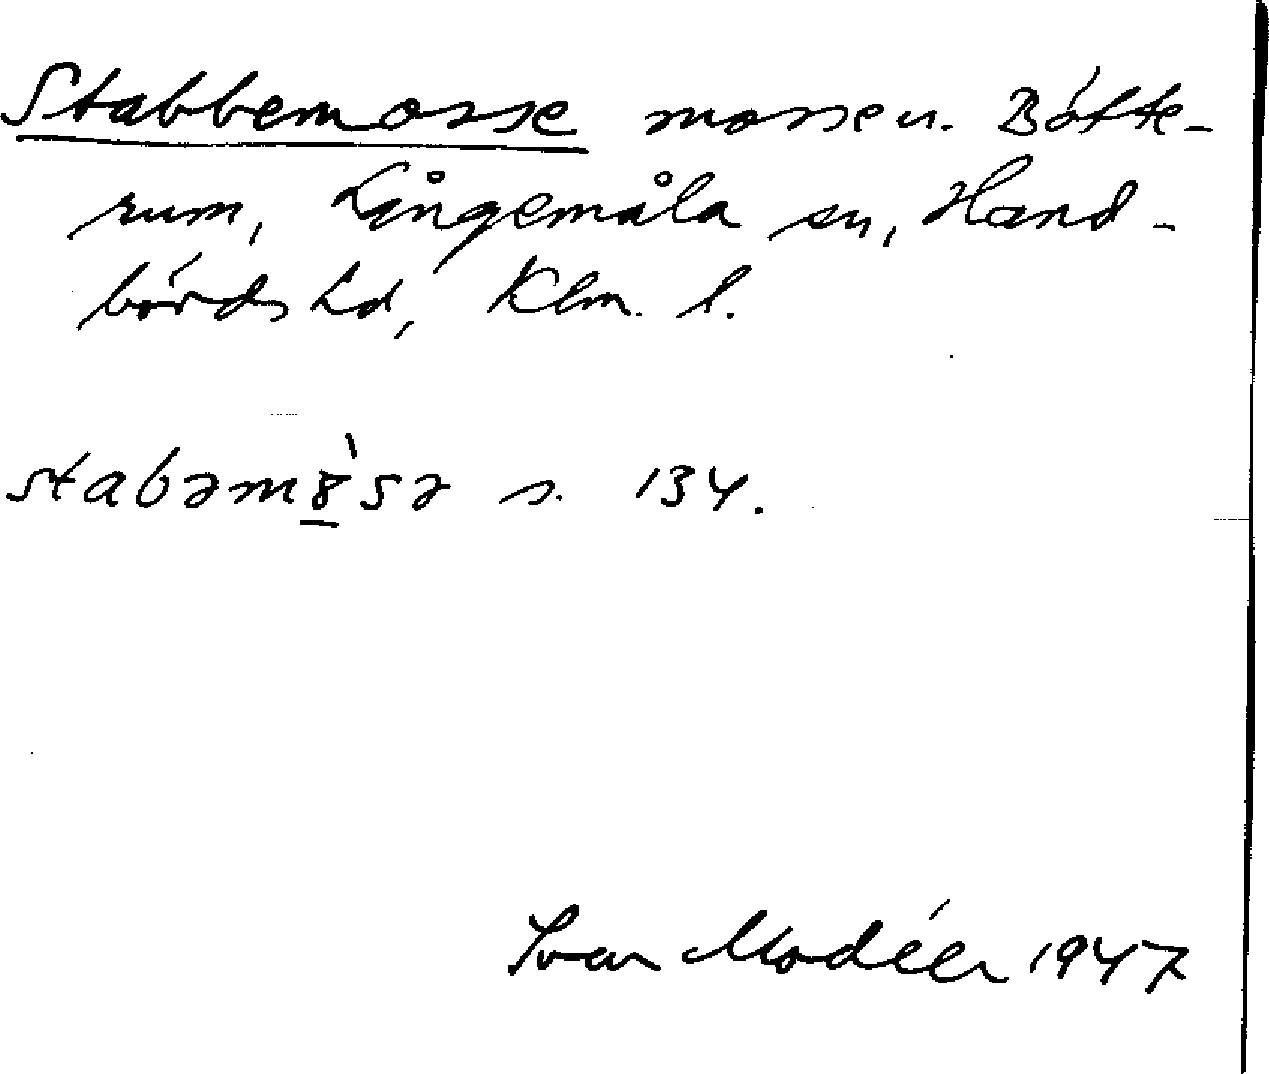 Stabbemosse mossen. Bótte-
rum, Långemåla sn, Hand-
börds hd, Klm. l.
stabəmȣ̠̀sə s. 134.
Ivar Modéer 1947